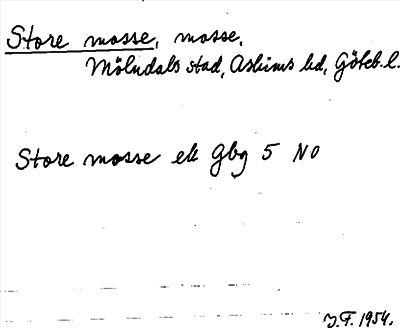 Store mosse, mosse,
Mölndals stad, Askims hd, Göteb. l.
Store mosse ek Gbg 5 NO
J.F. 1954.